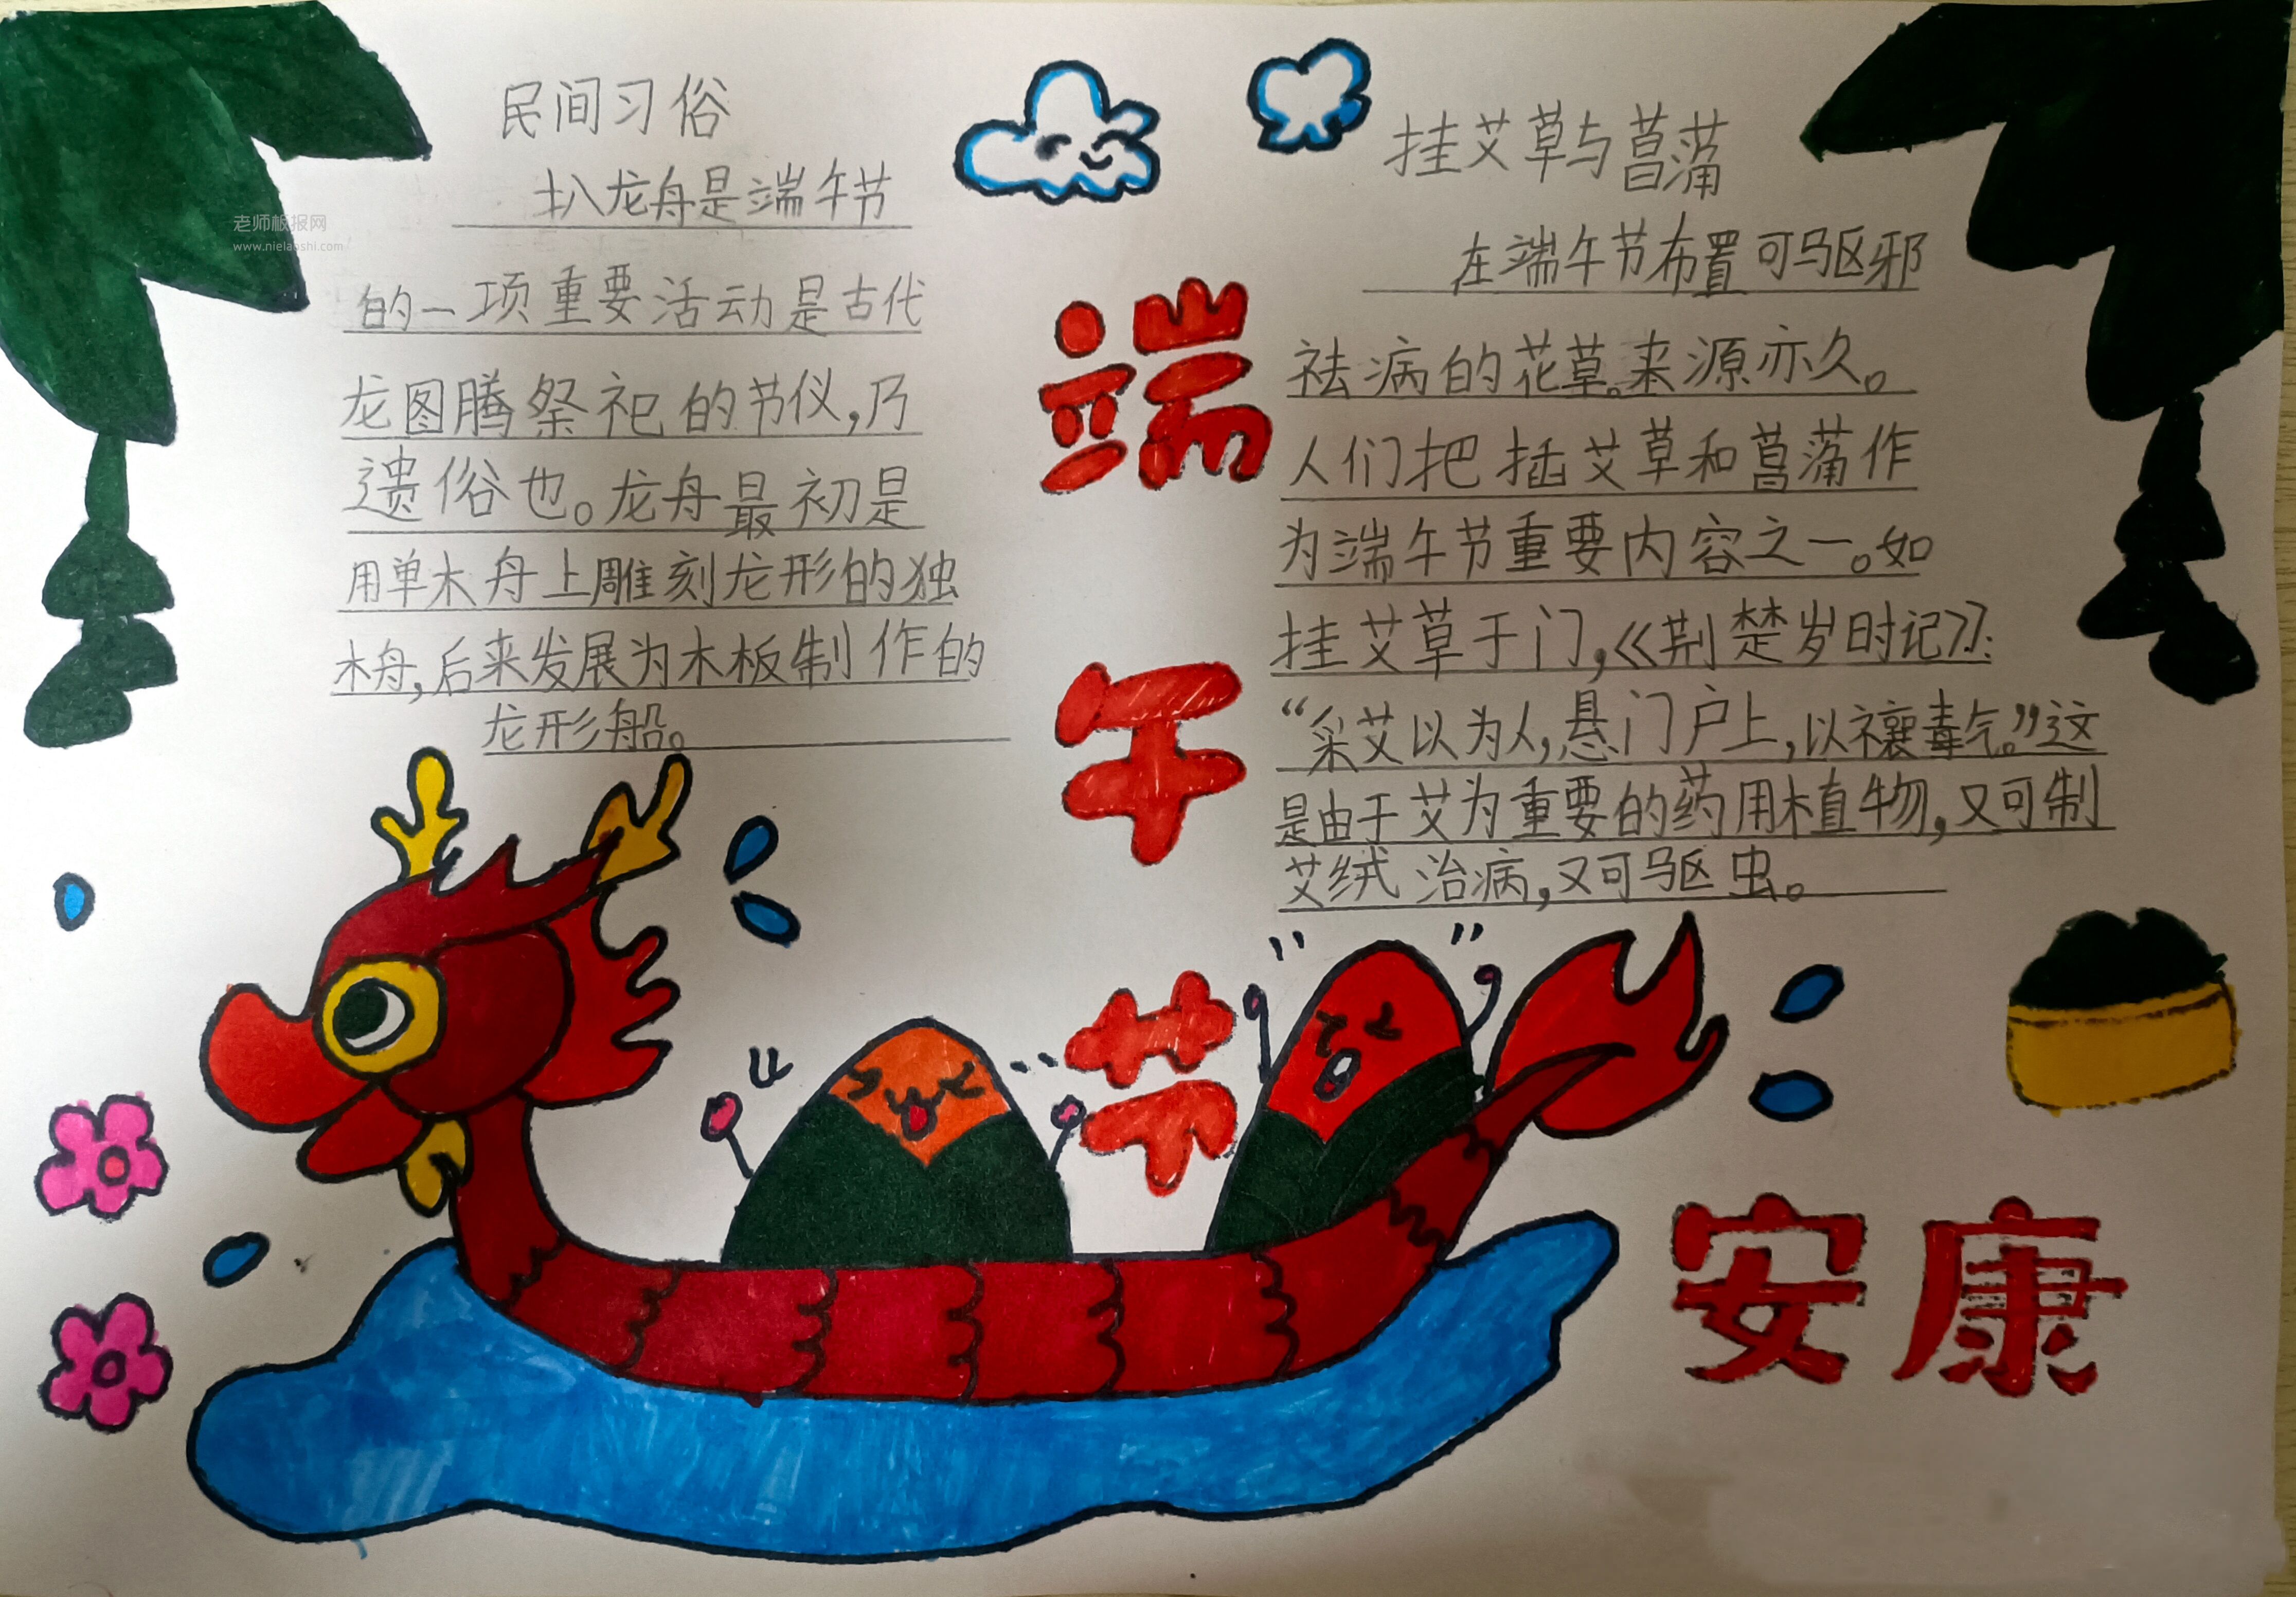 民间习俗
扒龙舟是端午节
的一项重要活动是古代
龙图腾祭祀的节仪,乃
遗俗也。龙舟最初是
用单木舟上雕刻龙形的独
木舟,后来发展为木板制作的
龙形船。
老师板报网
www.nielaoshi.com
端
午
节
挂艾草与菖蒲
在端午节布置可驱邪
祛病的花草。来源亦久。
人们把插艾草和菖蒲作
为端午节重要内容之一。如
挂艾草于门,《荆楚岁时记》:
“采艾以为人,悬门户上,以禳毒气。”这
是由于艾为重要的药用植物,又可制
艾绒治病,又可驱虫。
安康